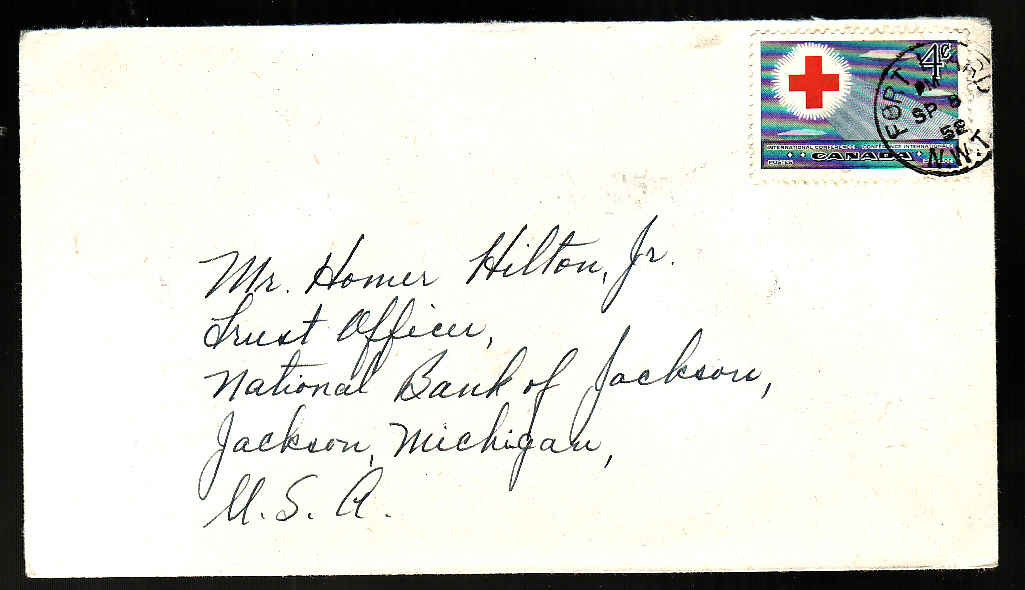 4¢
FORT
PM
SP 8
52
N.W.T.
INTERNATIONAL CONFERENCE CONFÉRENCE INTERNATIONALE
CANADA
POSTES
Mr. Homer Hilton, Jr.
Trust Officer,
National Bank of Jackson,
Jackson, Michigan,
U. S. A.